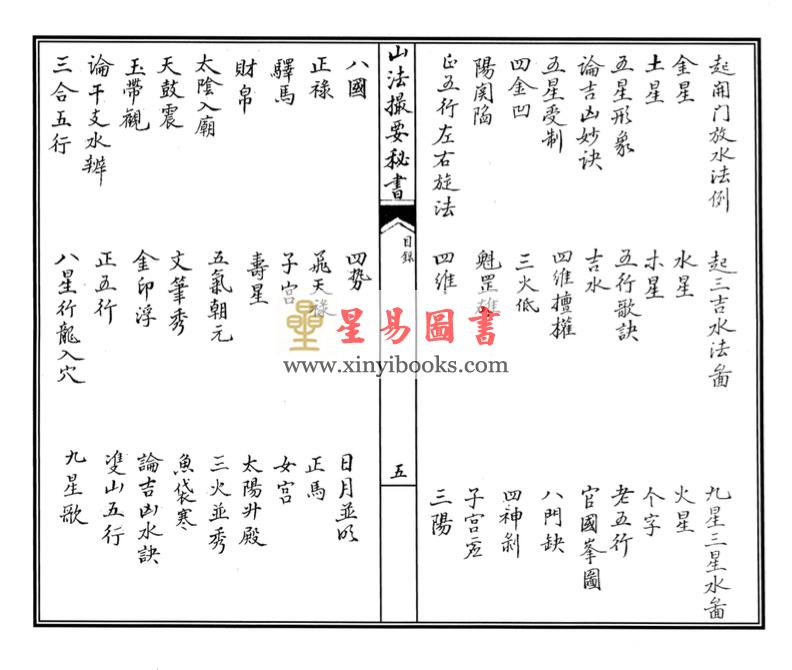 起開门放水法例
起三吉水法啚
九星三星水啚
金星
水星
火星
土星
木星
个字
五星形象
五行歌訣
老五行
論吉凶妙诀
吉水
官國峯圖
五星受制
四維擅權
八門缺
四金凹
三火低
四神剝
陽関陷
魁罡雄
正五行左右旋法
四維
三陽
山法撮要秘書
目錄
五
八國
四勢
日月並明
正祿
飛天祿
正馬
驛馬
子宫
女宫
財帛
壽星
太陽升殿
太陰入廟
五氣朝元
三火並秀
天鼓震
文筆秀
魚袋寒
玉帶觀
金印浮
論吉凶水訣
論干支水辨
正五行
雙山五行
三合五行
八星行龍入穴
九星歌
星易圖書
www.xinyibooks.com